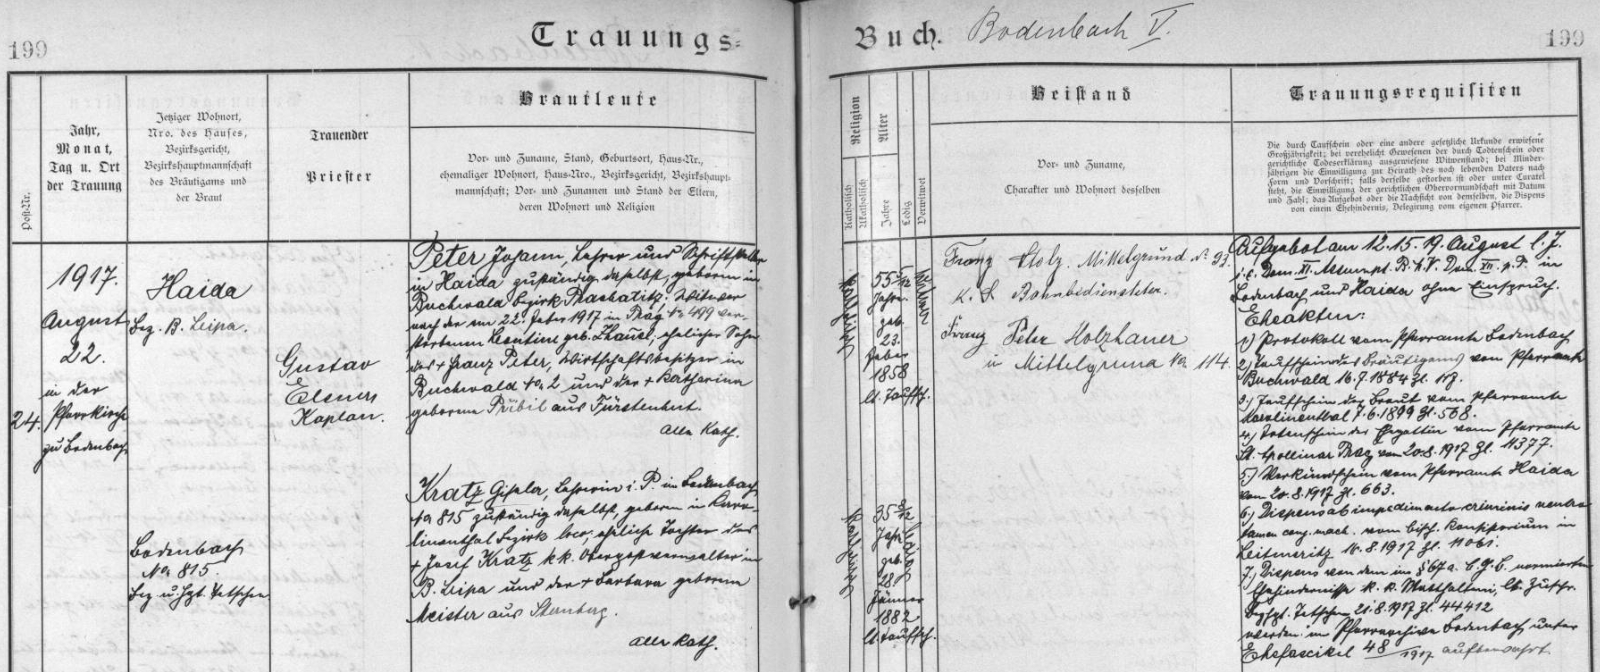 199
Trauungs-
Buch.
Bodenbach V.
199
Post-Nr.
Jahr,
Monat,
Tag u. Ort
der Trauung
Jetziger Wohnort,
Nro. des Hauses,
Bezirksgericht,
Bezirkshauptmannschaft
des Bräutigams und
der Braut
Trauender
Priester
Brautleute
Vor- und Zuname, Stand, Geburtsort, Haus-Nr.,
ehemaliger Wohnort, Haus-Nro., Bezirksgericht, Bezirkshaupt-
mannschaft; Vor- und Zunamen und Stand der Eltern,
deren Wohnort und Religion
Religion
Katholisch
Akatholisch
Alter
Jahre
Ledig
Verwitwet
Beistand
Vor- und Zuname,
Charakter und Wohnort desselben
Trauungsrequisiten
Die durch Taufschein oder eine andere gesetzliche Urkunde erwiesene
Großjährigkeit; bei verehelicht Gewesenen der durch Todtenschein oder
gerichtliche Todeserklärung ausgewiesene Witwenstand; bei Minder-
jährigen die Einwilligung zur Heirath des noch lebenden Vaters nach
Form und Vorschrift; falls derselbe gestorben ist oder unter Curatel
steht, die Einwilligung der gerichtlichen Obervormundschaft mit Datum
und Zahl; das Aufgebot oder die Nachsicht von demselben, die Dispens
von einem Ehehindernis, Delegirung vom eigenen Pfarrer.
24.
1917.
August
22.
in der
Pfarrkirche
zu Bodenbach
Haida
Bez. B. Leipa.
Bodenbach
No 815
Bez u. Hpt. Tetschen
Gustav
Elsner
Kaplan.
Peter Johann, Lehrer und Schriftsteller
in Haida zuständig daselbst, geboren in
Buchwald bezirk Prachatitz. Witwer
nach der am 22. Feber 1917 in Prag No 499 ver-
storbenen Leontine geb. ehelicher Sohn
des + Franz Peter, Wirtschaftsbesitzer in
Buchwald No 2 und der + Katharina
geborene Pribil aus Fürstenhut.
Alle Kath.
Kratz Gisela, Lehrerin i. P. in Bodenbach
No 815 zuständig daselbst, geboren in Karo-
linenthal Bezirk loco, eheliche Tochter des
+ Josef Kratz k.k. Oberpostverwalter in
B. Leipa und der + Barbara geborene
Meister aus Sternberg.
Alle Kath.
Katholisch
55 5/12
Jahre
geb.
23.
Feber
1858
lt. Taufsch.
Witwer
Katholisch
35
Jahre
geb.
Jänner
1882
lt. Taufsch.
Ledig
Franz Stolz. Mittelgrund No 93
k. k. Bahnbediensteter.
Franz Peter Holzhauer
in Mittelgrund No 114.
Aufgebot am 12. 15. 19. August l. J.
i. e. Dom. XI. Assumpt. B. V. Dom. XII. p. P. in
Bodenbach und Haida ohne Einspruch.
Eheakten:
1) Protokoll vom Pfarramte Bodenbach
2) Taufschein des Bräutigams vom Pfarramte
Buchwald 16.7.1884 Zl. 117.
3) Taufschein der Braut vom Pfarramte
Karolinenthal 7.6.1899 Zl. 568.
4) Totenschein der Gattin vom Pfarramte
St. Apollinar Prag vom 20.8.1917 Zl. 11377.
5) Verkündschein vom Pfarramte Haida
vom 20.8.1917 Zl. 663.
6) Dispens ab impedimento criminis neutro
tamen conj. mach. vom bisch. Konsistorium in
Leitmeritz 16.8.1917 Zl. 11061.
7) Dispens von dem im § 67 a. b. G. b. normierten
Ehehindernisse k. k. Statthalterei, lt. Zuschr.
Bezhpt. Tetschen 21.8.1917 Zl. 44412
werden im Pfarrarchive Bodenbach unter
Ehefascikel 48/1917 aufbewahrt